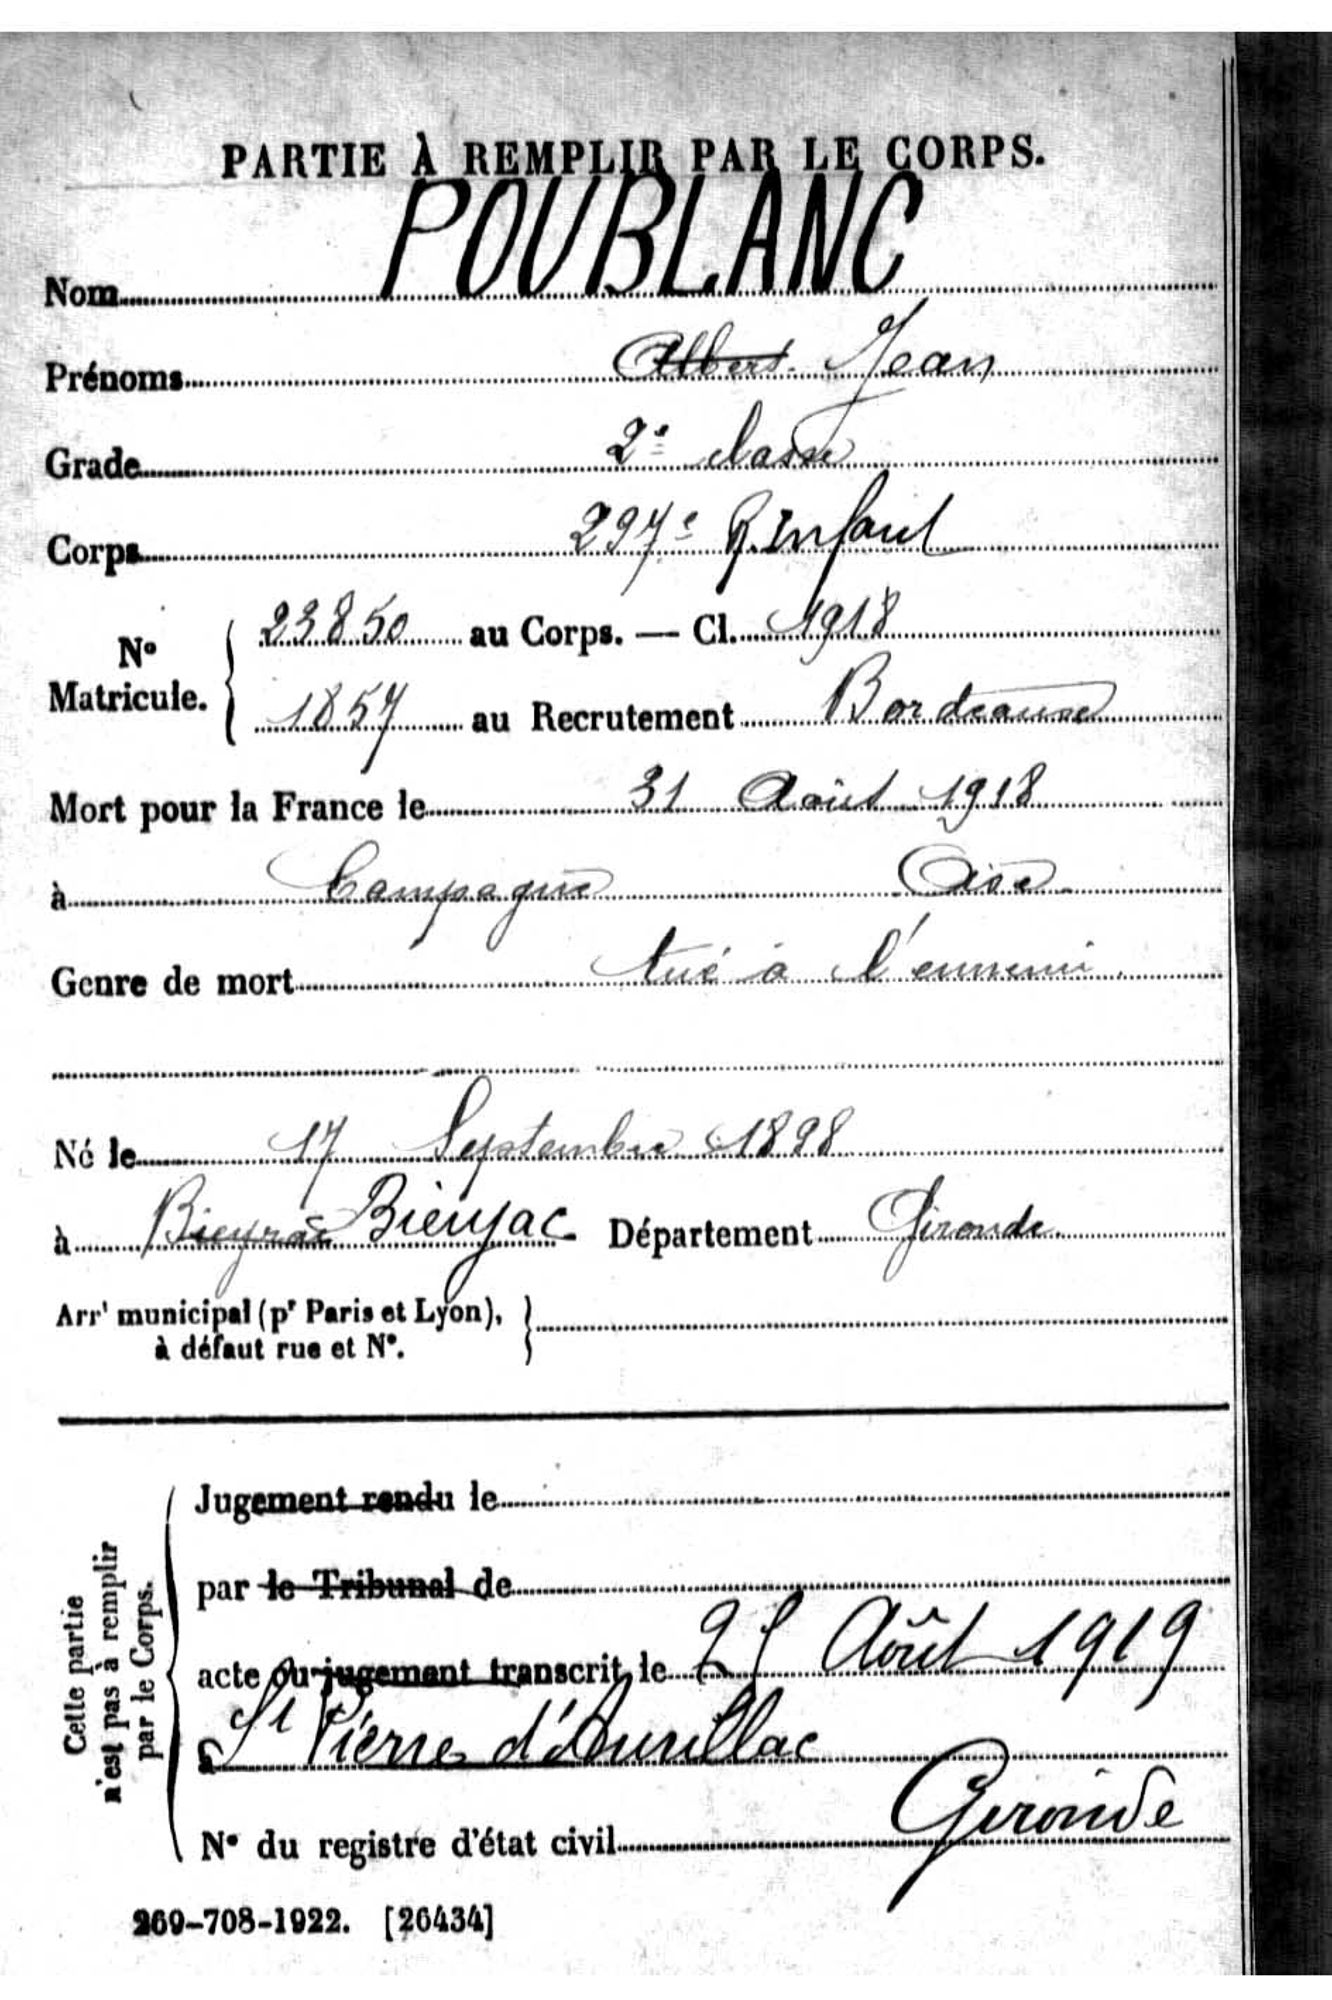 PARTIE À REMPLIR PAR LE CORPS.
Nom POUBLANC
Prénoms Albert Jean
Grade 2e classe
Corps 297e R. Infant
No Matricule. 23850 au Corps. — Cl. 1918
1857 au Recrutement Bordeaux
Mort pour la France le 31 Août 1918
à Campagne Oise
Genre de mort tué à l'ennemi
Né le 17 Septembre 1898
à Bieujac Département Gironde
Arrt municipal (pr Paris et Lyon),
à défaut rue et No.
Cette partie
n'est pas à remplir
par le Corps.
Jugement rendu le
par le Tribunal de
acte ou jugement transcrit le 25 Août 1919
à St Pierre d'Aurillac
Gironde
No du registre d'état civil
269-708-1922. [26434]